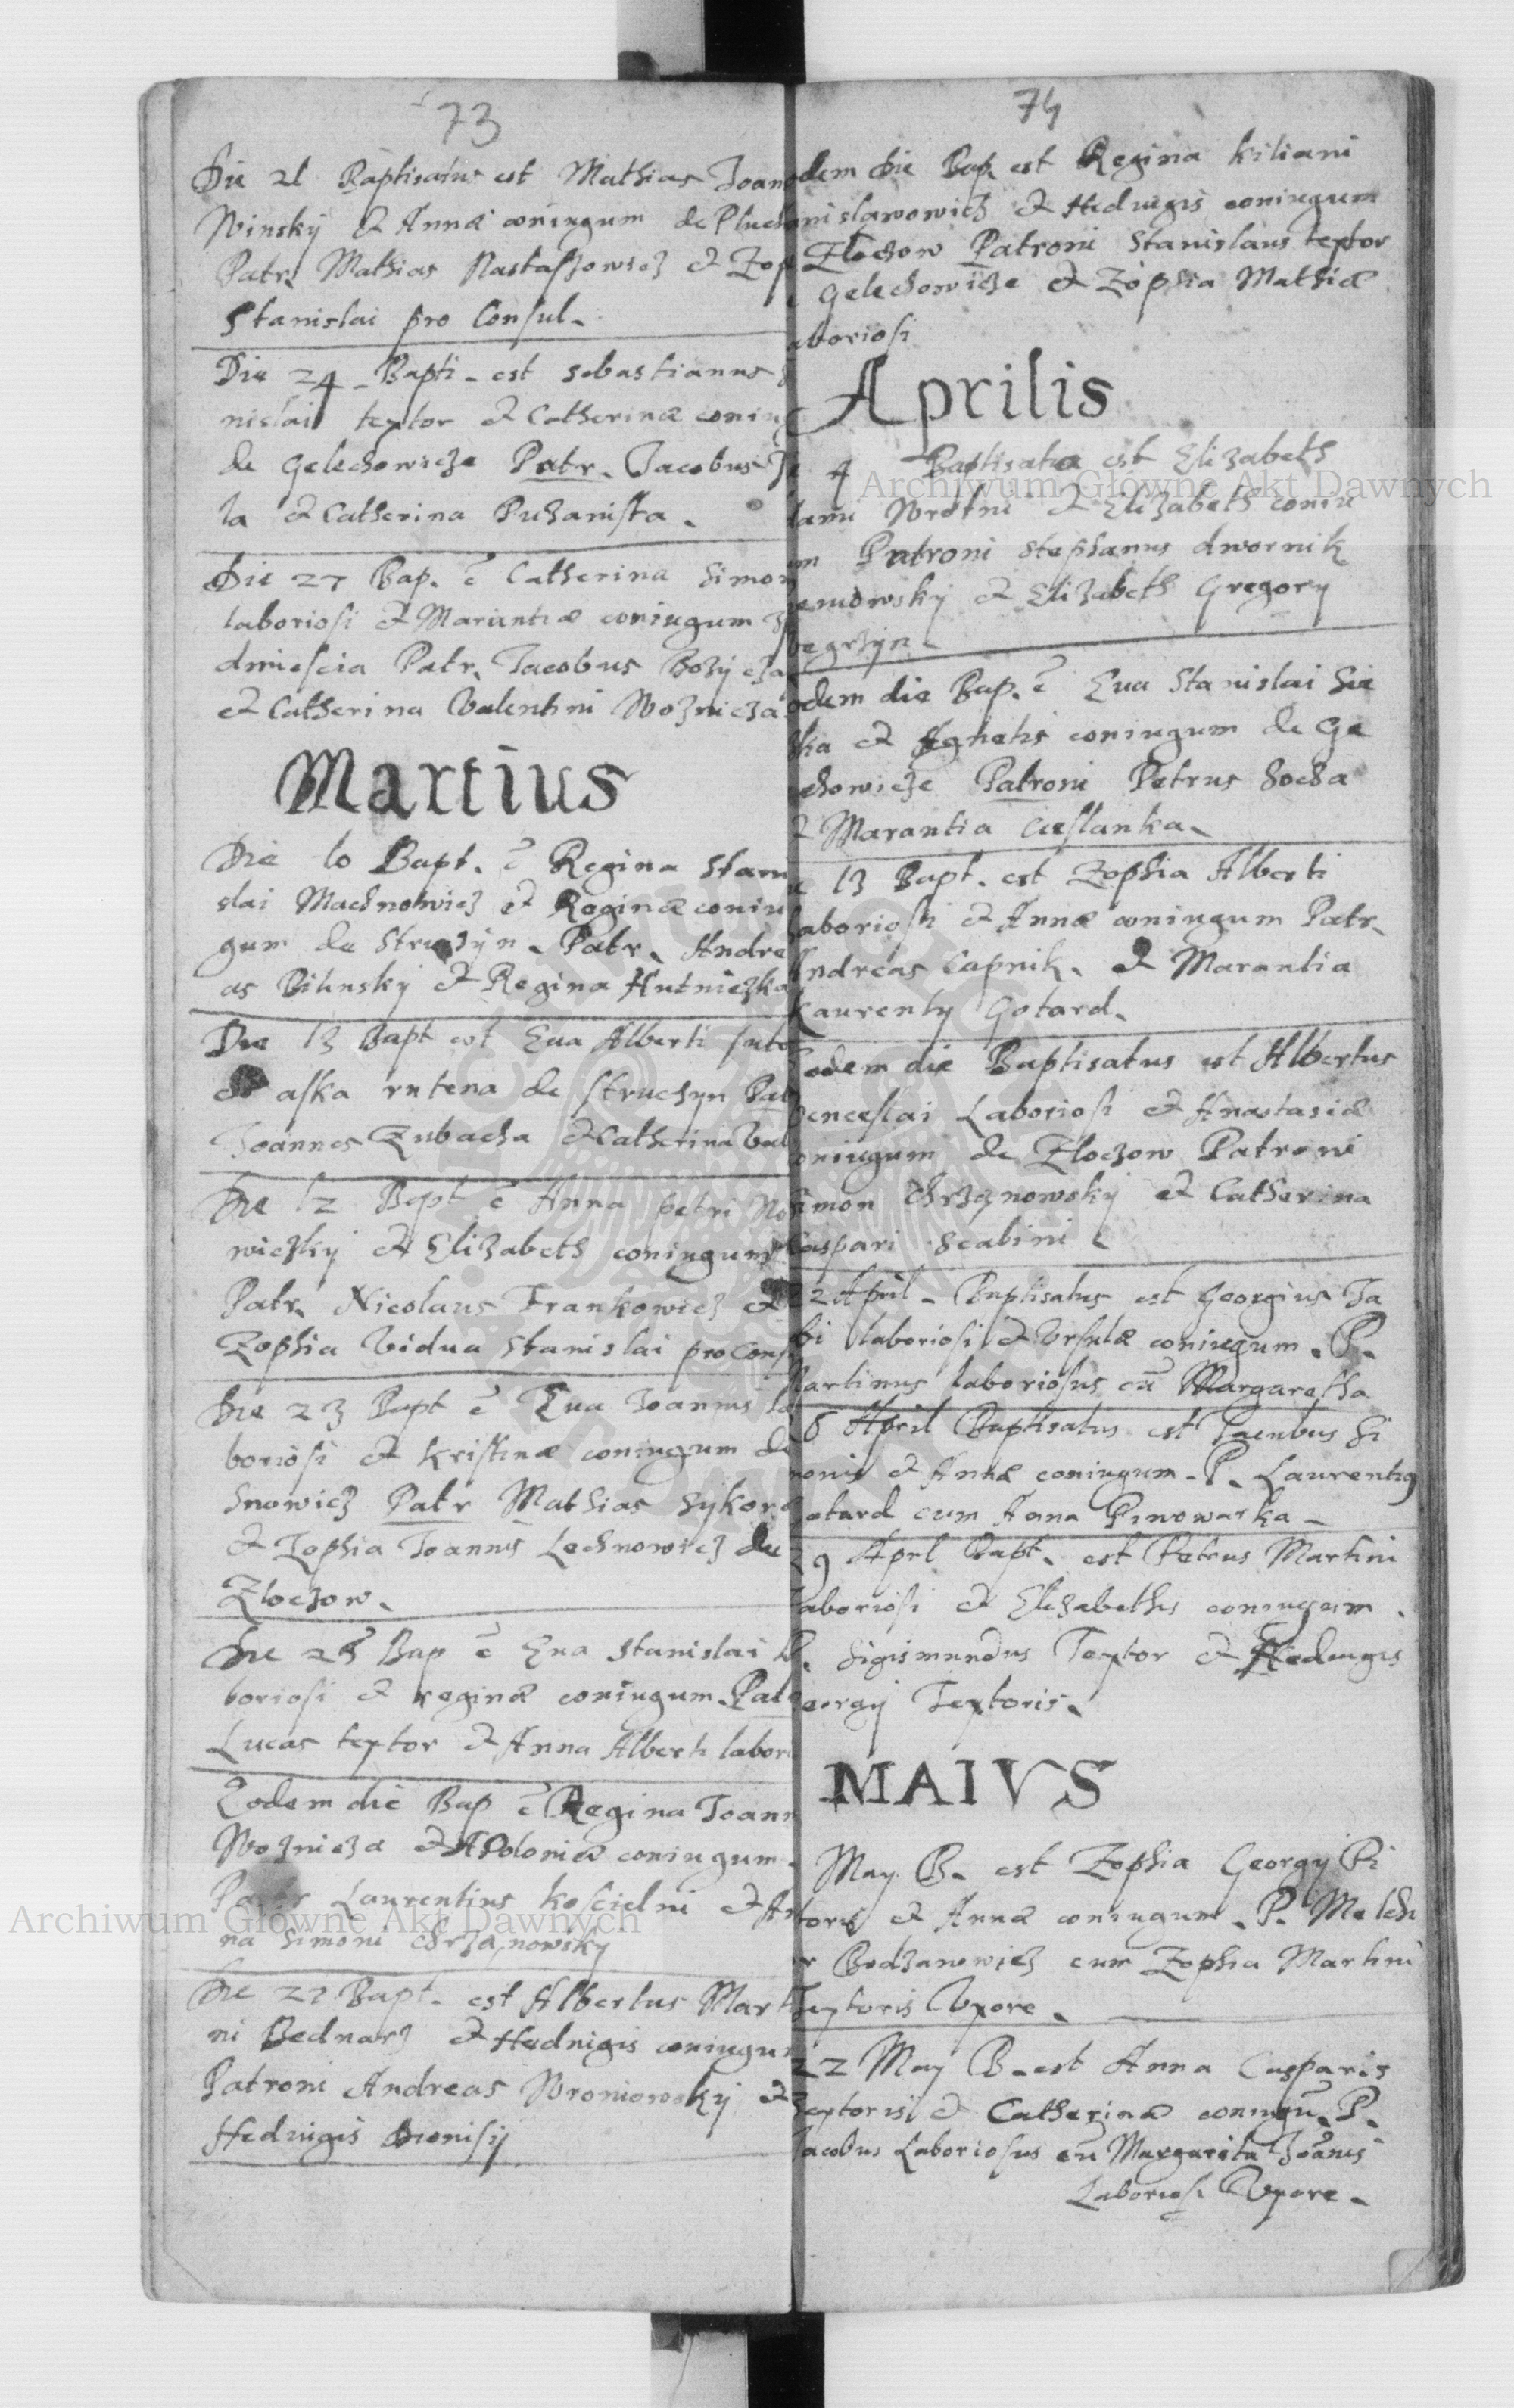 73
Die 21 Baptisatus est Mathias Joan
Winsky et Annæ coniugum de Pluch
Patr. Mathias Nastaszowicz et Zop
Stanislai pro Consul.
Die 24 Bapti. est Sebastianus
nislai textor et Catherinæ coniu
de Gelechowicze Patr. Jacobus
la et Catherina Puhanista.
Die 27 Bap. ē Catherina Simon
laboriosi et Mariantiæ coniugum
dmiescia Patr. Jacobus
et Catherina Valentini Woznicza
Martius
Die 10 Bapt. ē Regina Stani
slai Machnowicz et Reginæ coniu
gum de Patr. Andre
as Bilinsky et Regina Hutniczka
Die 13 Bapt est Eua Alberti suto
et aska rutena de struchyn Pat
Joannes Zubacha et Catherina Val
Die 12 Bapt ē Anna petri No
wiczky et Elizabeth coniugum
Patr. Nicolaus Frankowicz et
Zophia Vidua Stanislai pro Cons
Die 23 Bapt ē Eua Joannis la
boriosi et Kristinæ coniugum de
Snowicz Patr Mathias Sykora
et Zophia Joannis Lechnowicz de
Zloczow.
Die 25 Bap ē Eua Stanislai
boriosi et reginæ coniugum. Pat
Lucas textor et Anna Alberti labori
Eodem die Bap ē Regina Joann
Woznieza et Apoloniæ coniugum.
Laurentius koscielni et An
na Simoni chrzanowsky
Die 27 Bapt. est Albertus Mart
ni Bednarz et Hedwigis coniugu
Patroni Andreas Wroniowsky et
Hedwigis Dionisy
74
odem die Bap. est Regina kiliani
nislawowicz et Hedwigis coniugum
Zloczow Patroni Stanislaus textor
e Gelechowicze et Zophia Mathiæ
aboriosi
Aprilis
4 Baptisata est Elizabeth
dami Wrotni et Elizabeth coniu
m Patroni Stephanus dwornik
et Elizabeth Gregory
begrzyn.
odem die Bap. ē Eua Stanislai Sie
ka et Agnetis coniugum de Ge
chowicze Patroni Petrus Socha
t Marantia cieslanka.
e 13 Bapt. est Zophia Alberti
Laboriosi et Annæ coniugum Patr.
Andreas Capnik. et Marantia
Laurenty Gotard.
odem die Baptisatus est Albertus
enceslai Laboriosi et Anastasiæ
oniugum de Zloczow Patroni
Simon Chrzanowsky et Catherina
Caspari Scabini
22 April. Baptisatus est Georgius Ja
bi laboriosi et Ursulæ coniugum. P.
Martinus laboriosus cū Margaretha
6 April Baptisatus est Jacubus Si
monis et Annæ coniugum. P. Laurentius
otard cum Anna Piwowarka.
29 Aprl Bapt. est Petrus Martini
aboriosi et Elizabethis coniugum.
P. Sigismundus Textor et Hedwigis
eorgy Textoris.
MAIVS
May B. est Zophia Georgy Pi
toris et Annæ coniugum. P. Melchi
r Bodzanowicz cum Zophia Martini
Textoris Vxore.
22 May B. est Anna Casparis
Textoris et Catherinæ coniugū. P.
Jacobus Laboriosus cū Margarita Joānis
Laboriosi Vxore.
Archiwum Główne Akt Dawnych
Archiwum Główne Akt Dawnych